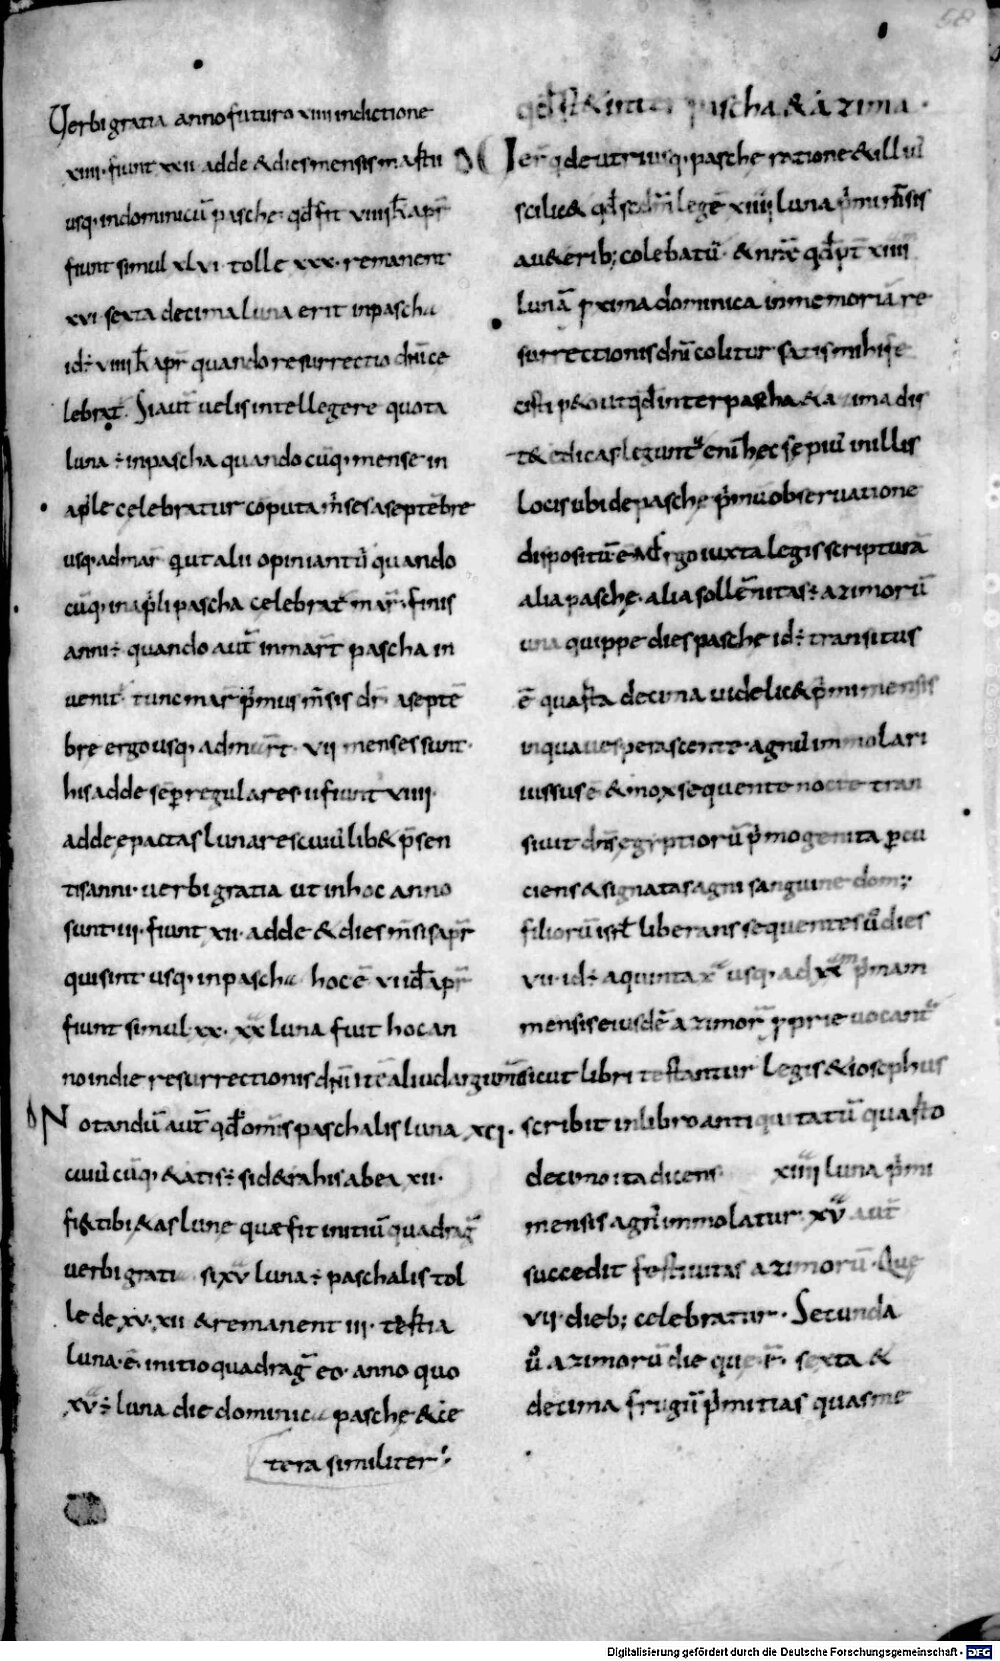 58
Uerbi gratia anno futuro xiiii indictione
xiiii · fiunt xxii adde & dies mensis martii
usq; in dominicū pasche qđ fit viiii k̄ apr̄
fiunt simul xlvi · tolle xxx · remanent
xvi sexta decima luna erit in pascha
id ÷ viiii k̄ apr̄ quando resurrectio dn̄i ce
lebrat̄ · Si aut̄ uelis intellegere quota
luna ÷ in pascha quando cūq; mense in
ap̄le celebratur cōputa m̄ses a septēbre
usq; ad mar̄ q̇ ut alii opiniantū quando
cūq; in ap̄li pascha celebrat̄ mar̄ · finis
anni ÷ quando aut̄ in mart̄ pascha in
uenit̄ · tunc mar̄ p̄mus m̄sis dr̄ a septē
bre ergo usq; ad mart̄ · vii menses sunt ·
his adde sēp regulares ii fiunt viiii ·
adde epactas lunares cuiuslib& p̄sen
tis anni · uerbi gratia ut in hoc anno
sunt · iii · fiunt xii · adde & dies m̄sis apr̄
qui sint usq; in pascha hoc ē viid apr̄
fiunt simul · xx · xx luna fiut hoc an
no in die resurrectionis dn̄i Itē aliud argum̄
Notandū aut̄ qđ om̄is paschalis luna xci ·
cuiuscūq; &atis ÷ si d&rahis ab ea xii ·
fi& tibi &as lune quæ fit initiū quadrag̃
uerbi gratia si xv luna ÷ paschalis tol
le de xv · xii & remanent iii · tertia
luna · ē · initio quadrag̃ eo · anno quo
xv ÷ luna die dominica pasche & ce
tera similiter ·
qđ st̄ & inter pascha & azima ·
Ier q̇ de utriusq; pasche ratione & illud
scilic& qđ scdm̄ legē xiiii luna p̄mi m̄sis
au& erib; colebatū · & nunc qđ pt̄ xiiii
lunā pxima dominica in memoriā re
surrectionis dn̄i colitur satis mihi fe
cisti p&o ut qđ inter pascha & azima dis
t& edicas legunt̄ eni hec sepius in illis
locis ubi de pasche p̄mū obseruatione
dispositū ē Ad ergo iuxta legis scripturā
alia pasche · alia sollēnitas ÷ azimorū
una quippe dies pasche id ÷ transitus
ē quarta decima uidelic& p̄mi mensis
in qua uesperascente agnus immolari
iussus ē & mox sequente nocte tran
siuit dn̄s egyptiorū p̄mogenita pcu
ciens & signatas agni sanguine dom;
filiorū isrł liberans sequentes ū dies
vii · id ÷ a quinta x̄ usq; ad xx p̄mam
mensis eiusdē azimor̄ pprie uocant̄
sicut libri testantur legis & iosephus
scribit in libro antiquitatū quarto
decimo ita dicens xiiii luna p̄mi
mensis agnus immolatur · xv aut̄
succedit festiuitas azimorū · Que
vii · dieb; celebratur · Secunda
ū azimorū die que · ē · sexta &
decima frugū p̄mitias quas me
Digitalisierung gefördert durch die Deutsche Forschungsgemeinschaft · DFG